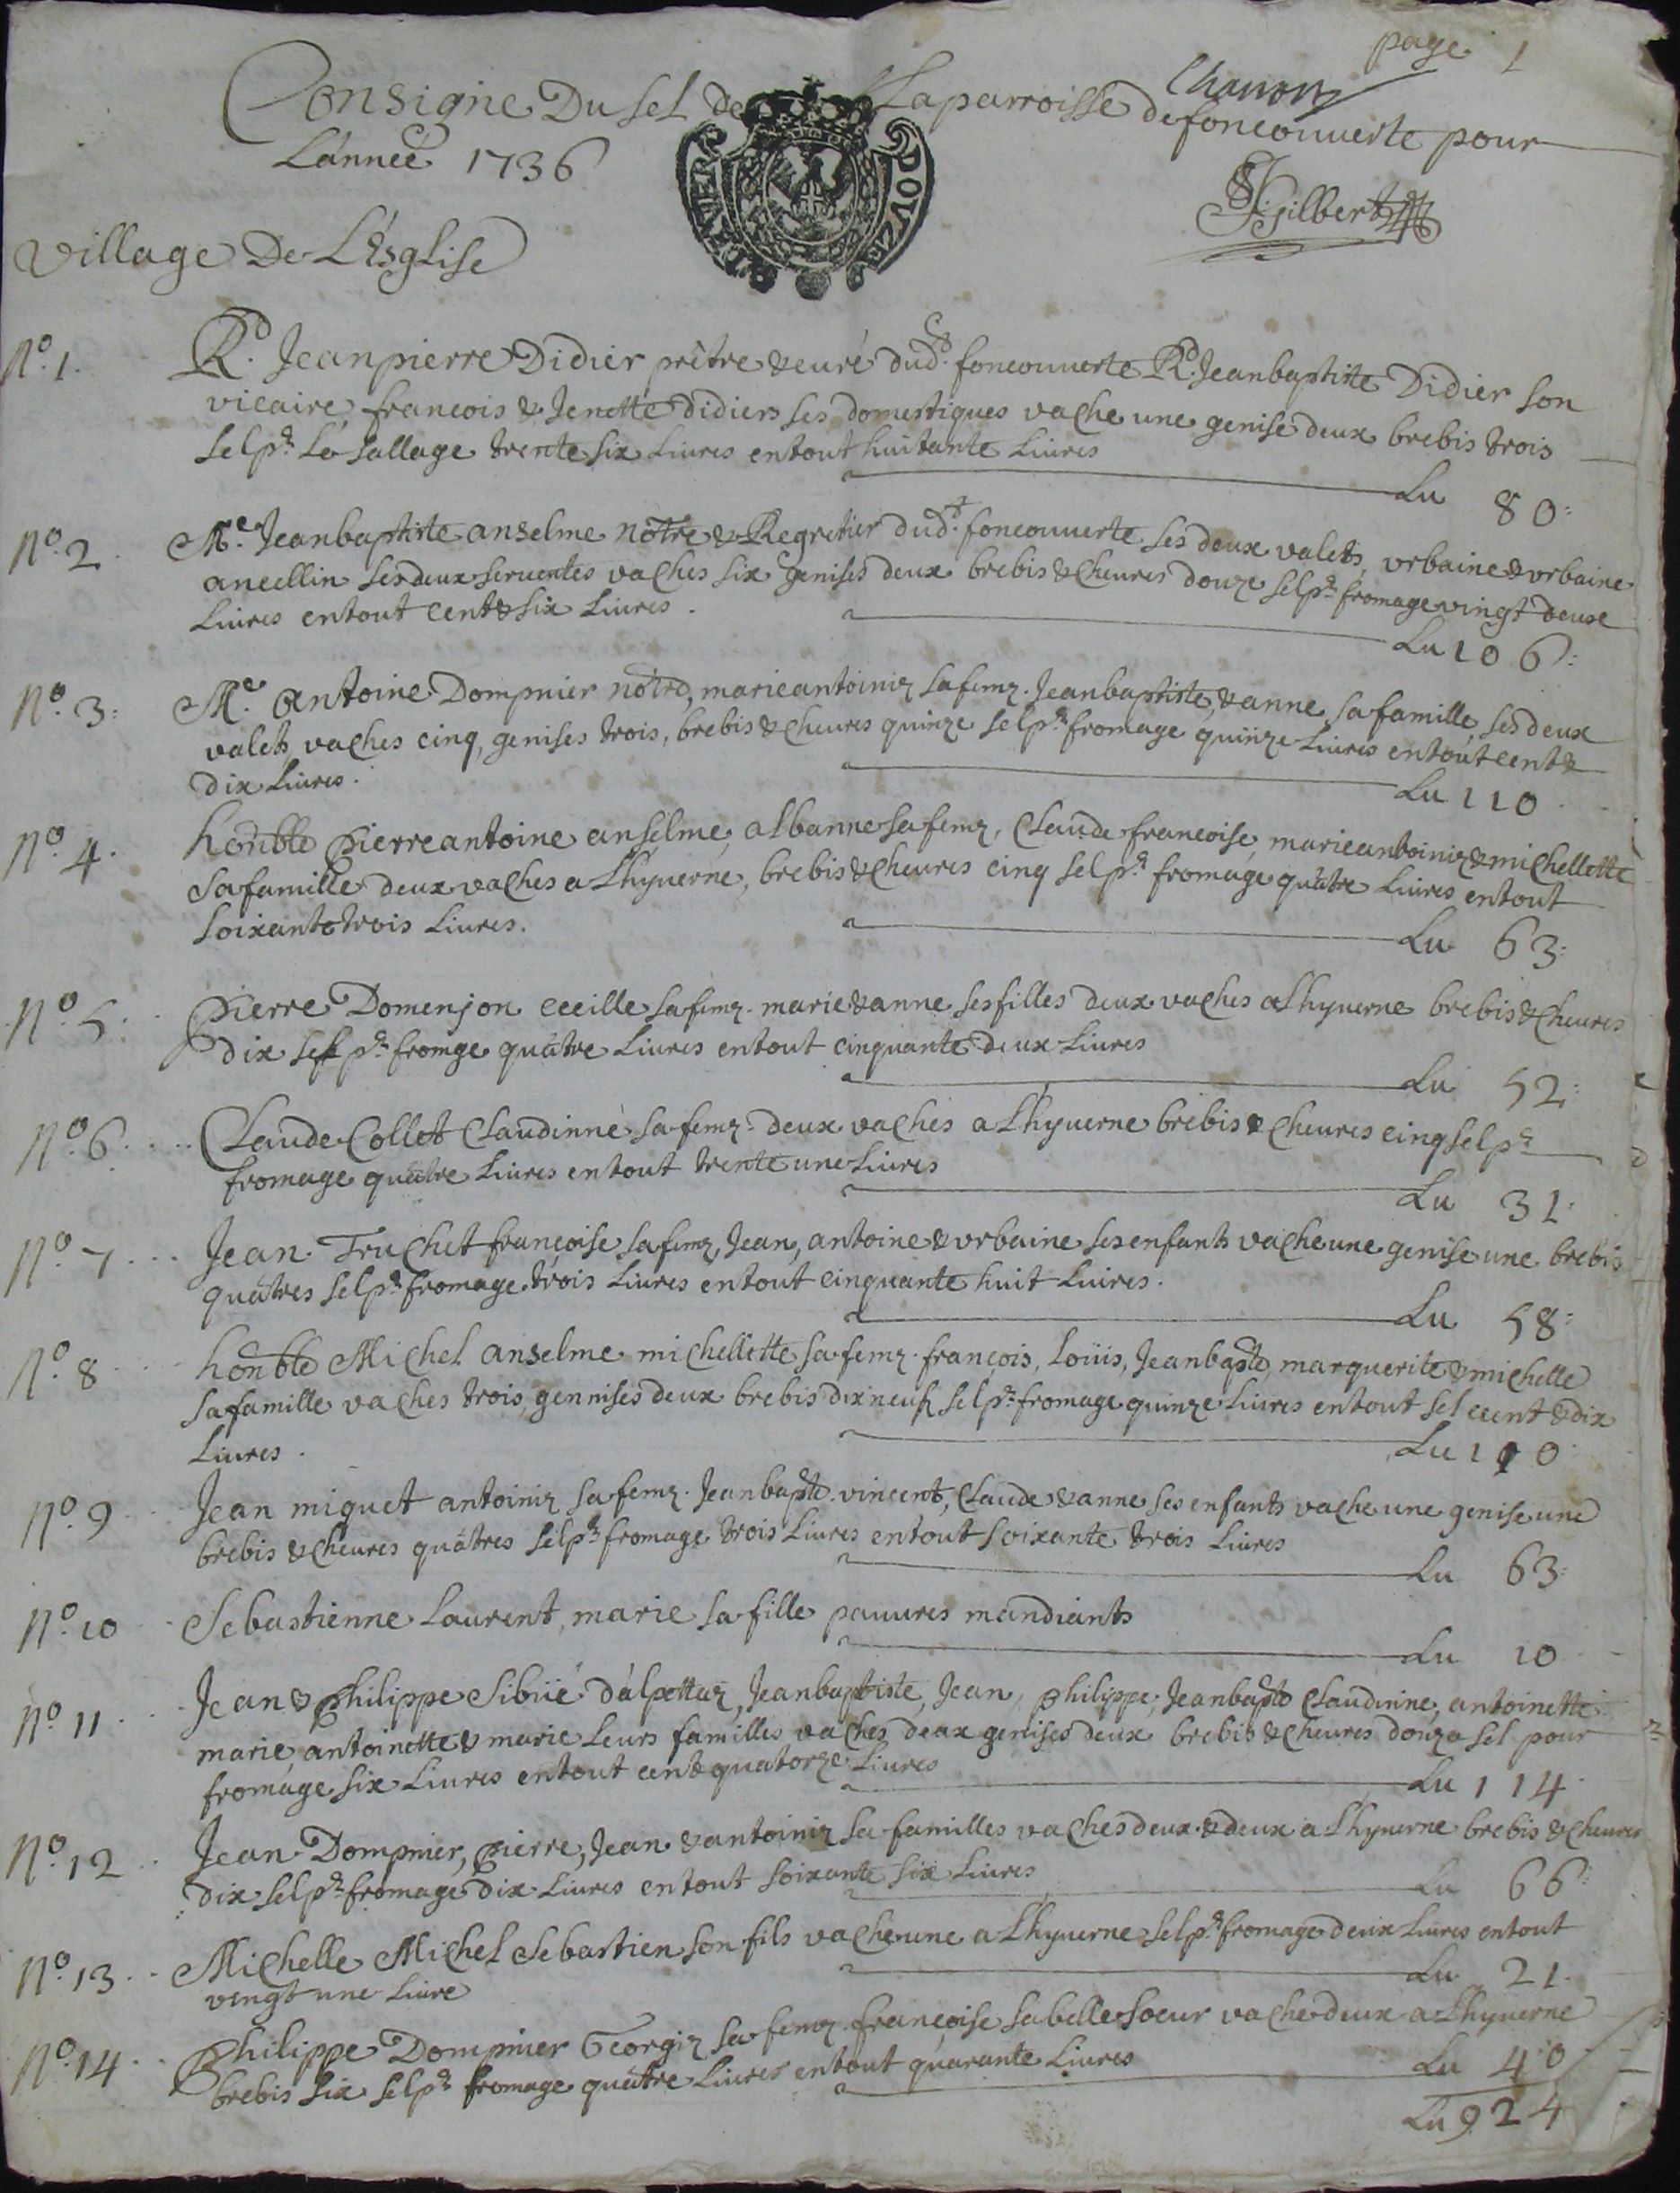 page 1
Chanon
Consigne Du sel de Laparroisse de foncouuerte pour
L'année 1736
DOUZE
F Gilbert
Village De L'Esglise
N.o 1. R.d Jeanpierre Didier prêtre & curé dud.t foncouuerte R.d Jeanbaptiste Didier son
vicaire, francois & Jenette didiers ses domestiques vache une genise deux brebis trois
sel p.r le sallage trente six Liures entout huitante Liures
Lu 80:
N.o 2. M.e Jeanbaptiste anselme no.tre & Regretier dud.t foncouuerte ses deux valets, vrbaine & vrbaine
ancellin ses deux seruentes vaches six genises deux brebis & cheures douze sel p.r fromage vingt deux
Liures entout cent & six Liures.
Lu 106:
N.o 3: M.e Antoine Dompnier not.re, marie antoini.z sa fem.z Jeanbaptiste, & anne, sa famille, ses deux
valets vaches cinq, genises trois, brebis & cheures quinze sel p.r fromage quinze Liures entout cent &
dix Liures.
Lu 110
N.o 4. hon.ble Pierreantoine anselme, albanne sa fem.z, Claude francoise, marieantoini.z & michellette
sa famille deux vaches a Lhyuerne, brebis & cheures cinq sel p.r fromage quatre Liures entout
soixante trois Liures.
Lu 63:
N.o 5: Pierre Domenjon cecille sa fem.z marie & anne ses filles deux vaches a Lhyuerne brebis & cheures
dix sel p.r fromge quatre Liures entout cinquante deux Liures
Lu 52:
N.o 6. Claude Collet Claudinne sa fem.z deux vaches a Lhyuerne brebis & cheures cinq sel p.r
fromage quatre Liures entout trente une Liures
Lu 31:
N.o 7 Jean Truchet françoise sa fem.z, Jean, antoine & vrbaine ses enfants vache une genise une brebis
quatres sel p.r fromage trois Liures entout cinquante huit Liures.
Lu 58:
N.o 8 hon.ble Michel anselme michellette sa fem.z françois, Loüis, Jeanbap.te, marguerite & michelle
sa famille vaches trois, gennises deux brebis dix neuf sel p.r fromage quinze Liures entout sel cent & dix
Liures.
Lu 110
N.o 9 Jean miquet antoini.z sa fem.z Jeanbap.te vincent, Claude & anne ses enfants vache une genise une
brebis & cheures quatres sel p.r fromage trois Liures entout soixante trois Liures
Lu 63:
N.o 10 Sebastienne Laurent, marie sa fille pauures mandiants
Lu 10
N.o 11 Jean & Philippe Sibüé d'alpetta.z, Jeanbaptiste, Jean, Philippe, Jeanbap.te Claudinne, antoinette
marie antoinette & marie Leurs familles vaches deux genises deux brebis & cheures douze sel pour
fromage six Liures entout cent quatorze Liures
Lu 114
N.o 12 Jean Dompnier, Pierre, Jean & antoini.z sa familles vaches deux & deux a Lhyuerne brebis & cheures
dix sel p.r fromage dix Liures entout soixante six Liures
Lu 66:
N.o 13 Michelle Michel Sebastien son fils vache une a Lhyuerne sel p.r fromage deux Liures entout
vingt une Liure
Lu 21
N.o 14 Philippe Dompnier Georgi.z sa fem.z françoise sa belle soeur vache deux a Lhyuerne
brebis six sel p.r fromage quatre Liures entout quarante Liures
Lu 40
Lu 924